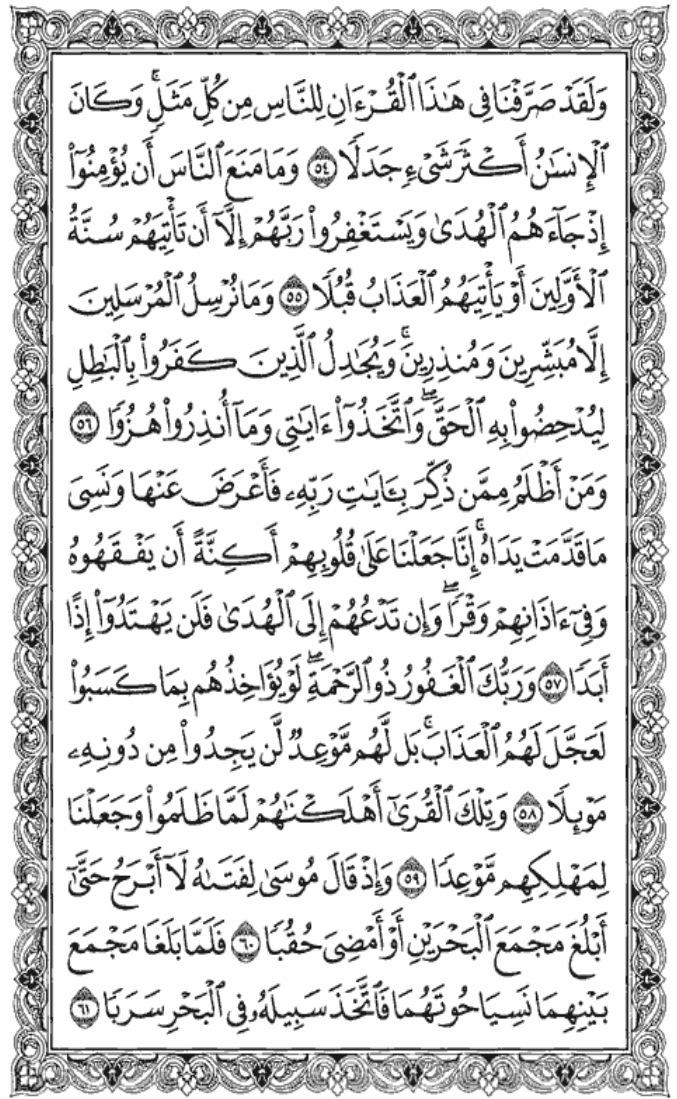 وَلَقَدْ صَرَّفْنَا فِي هَٰذَا ٱلْقُرْءَانِ لِلنَّاسِ مِن كُلِّ مَثَلٍۚ وَكَانَ
ٱلْإِنسَٰنُ أَكْثَرَ شَىْءٍ جَدَلًا ۝٥٤ وَمَا مَنَعَ ٱلنَّاسَ أَن يُؤْمِنُوٓا۟
إِذْ جَآءَهُمُ ٱلْهُدَىٰ وَيَسْتَغْفِرُوا۟ رَبَّهُمْ إِلَّآ أَن تَأْتِيَهُمْ سُنَّةُ
ٱلْأَوَّلِينَ أَوْ يَأْتِيَهُمُ ٱلْعَذَابُ قُبُلًا ۝٥٥ وَمَا نُرْسِلُ ٱلْمُرْسَلِينَ
إِلَّا مُبَشِّرِينَ وَمُنذِرِينَۚ وَيُجَٰدِلُ ٱلَّذِينَ كَفَرُوا۟ بِٱلْبَٰطِلِ
لِيُدْحِضُوا۟ بِهِ ٱلْحَقَّۖ وَٱتَّخَذُوٓا۟ ءَايَٰتِى وَمَآ أُنذِرُوا۟ هُزُوًا ۝٥٦
وَمَنْ أَظْلَمُ مِمَّن ذُكِّرَ بِـَٔايَٰتِ رَبِّهِۦ فَأَعْرَضَ عَنْهَا وَنَسِىَ
مَا قَدَّمَتْ يَدَاهُۚ إِنَّا جَعَلْنَا عَلَىٰ قُلُوبِهِمْ أَكِنَّةً أَن يَفْقَهُوهُ
وَفِىٓ ءَاذَانِهِمْ وَقْرًاۖ وَإِن تَدْعُهُمْ إِلَى ٱلْهُدَىٰ فَلَن يَهْتَدُوٓا۟ إِذًا
أَبَدًا ۝٥٧ وَرَبُّكَ ٱلْغَفُورُ ذُو ٱلرَّحْمَةِۖ لَوْ يُؤَاخِذُهُم بِمَا كَسَبُوا۟
لَعَجَّلَ لَهُمُ ٱلْعَذَابَۚ بَل لَّهُم مَّوْعِدٌ لَّن يَجِدُوا۟ مِن دُونِهِۦ
مَوْئِلًا ۝٥٨ وَتِلْكَ ٱلْقُرَىٰٓ أَهْلَكْنَٰهُمْ لَمَّا ظَلَمُوا۟ وَجَعَلْنَا
لِمَهْلِكِهِم مَّوْعِدًا ۝٥٩ وَإِذْ قَالَ مُوسَىٰ لِفَتَىٰهُ لَآ أَبْرَحُ حَتَّىٰٓ
أَبْلُغَ مَجْمَعَ ٱلْبَحْرَيْنِ أَوْ أَمْضِىَ حُقُبًا ۝٦٠ فَلَمَّا بَلَغَا مَجْمَعَ
بَيْنِهِمَا نَسِيَا حُوتَهُمَا فَٱتَّخَذَ سَبِيلَهُۥ فِى ٱلْبَحْرِ سَرَبًا ۝٦١